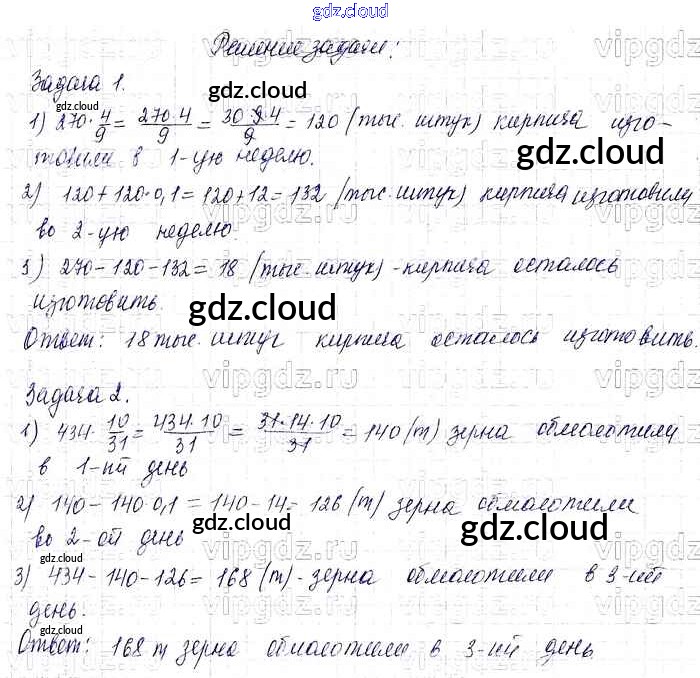 gdz.cloud
Решение задачи:
Задача 1.
1) 270 · 4/9 = 270·4/9 = 30·9·4/9 = 120 (тыс. штук) кирпича изго-
товили в 1-ую неделю.
2) 120 + 120·0,1 = 120 + 12 = 132 (тыс. штук) кирпича изготовили
во 2-ую неделю.
3) 270 - 120 - 132 = 18 (тыс. штук) - кирпича осталось
изготовить.
Ответ: 18 тыс. штук кирпича осталось изготовить.
Задача 2.
1) 434 · 10/31 = 434·10/31 = 31·14·10/31 = 140 (т) зерна обмолотили
в 1-ый день
2) 140 - 140·0,1 = 140 - 14 = 126 (т) зерна обмолотили
во 2-ой день
3) 434 - 140 - 126 = 168 (т) - зерна обмолотили в 3-ий
день.
Ответ: 168 т зерна обмолотили в 3-ий день.